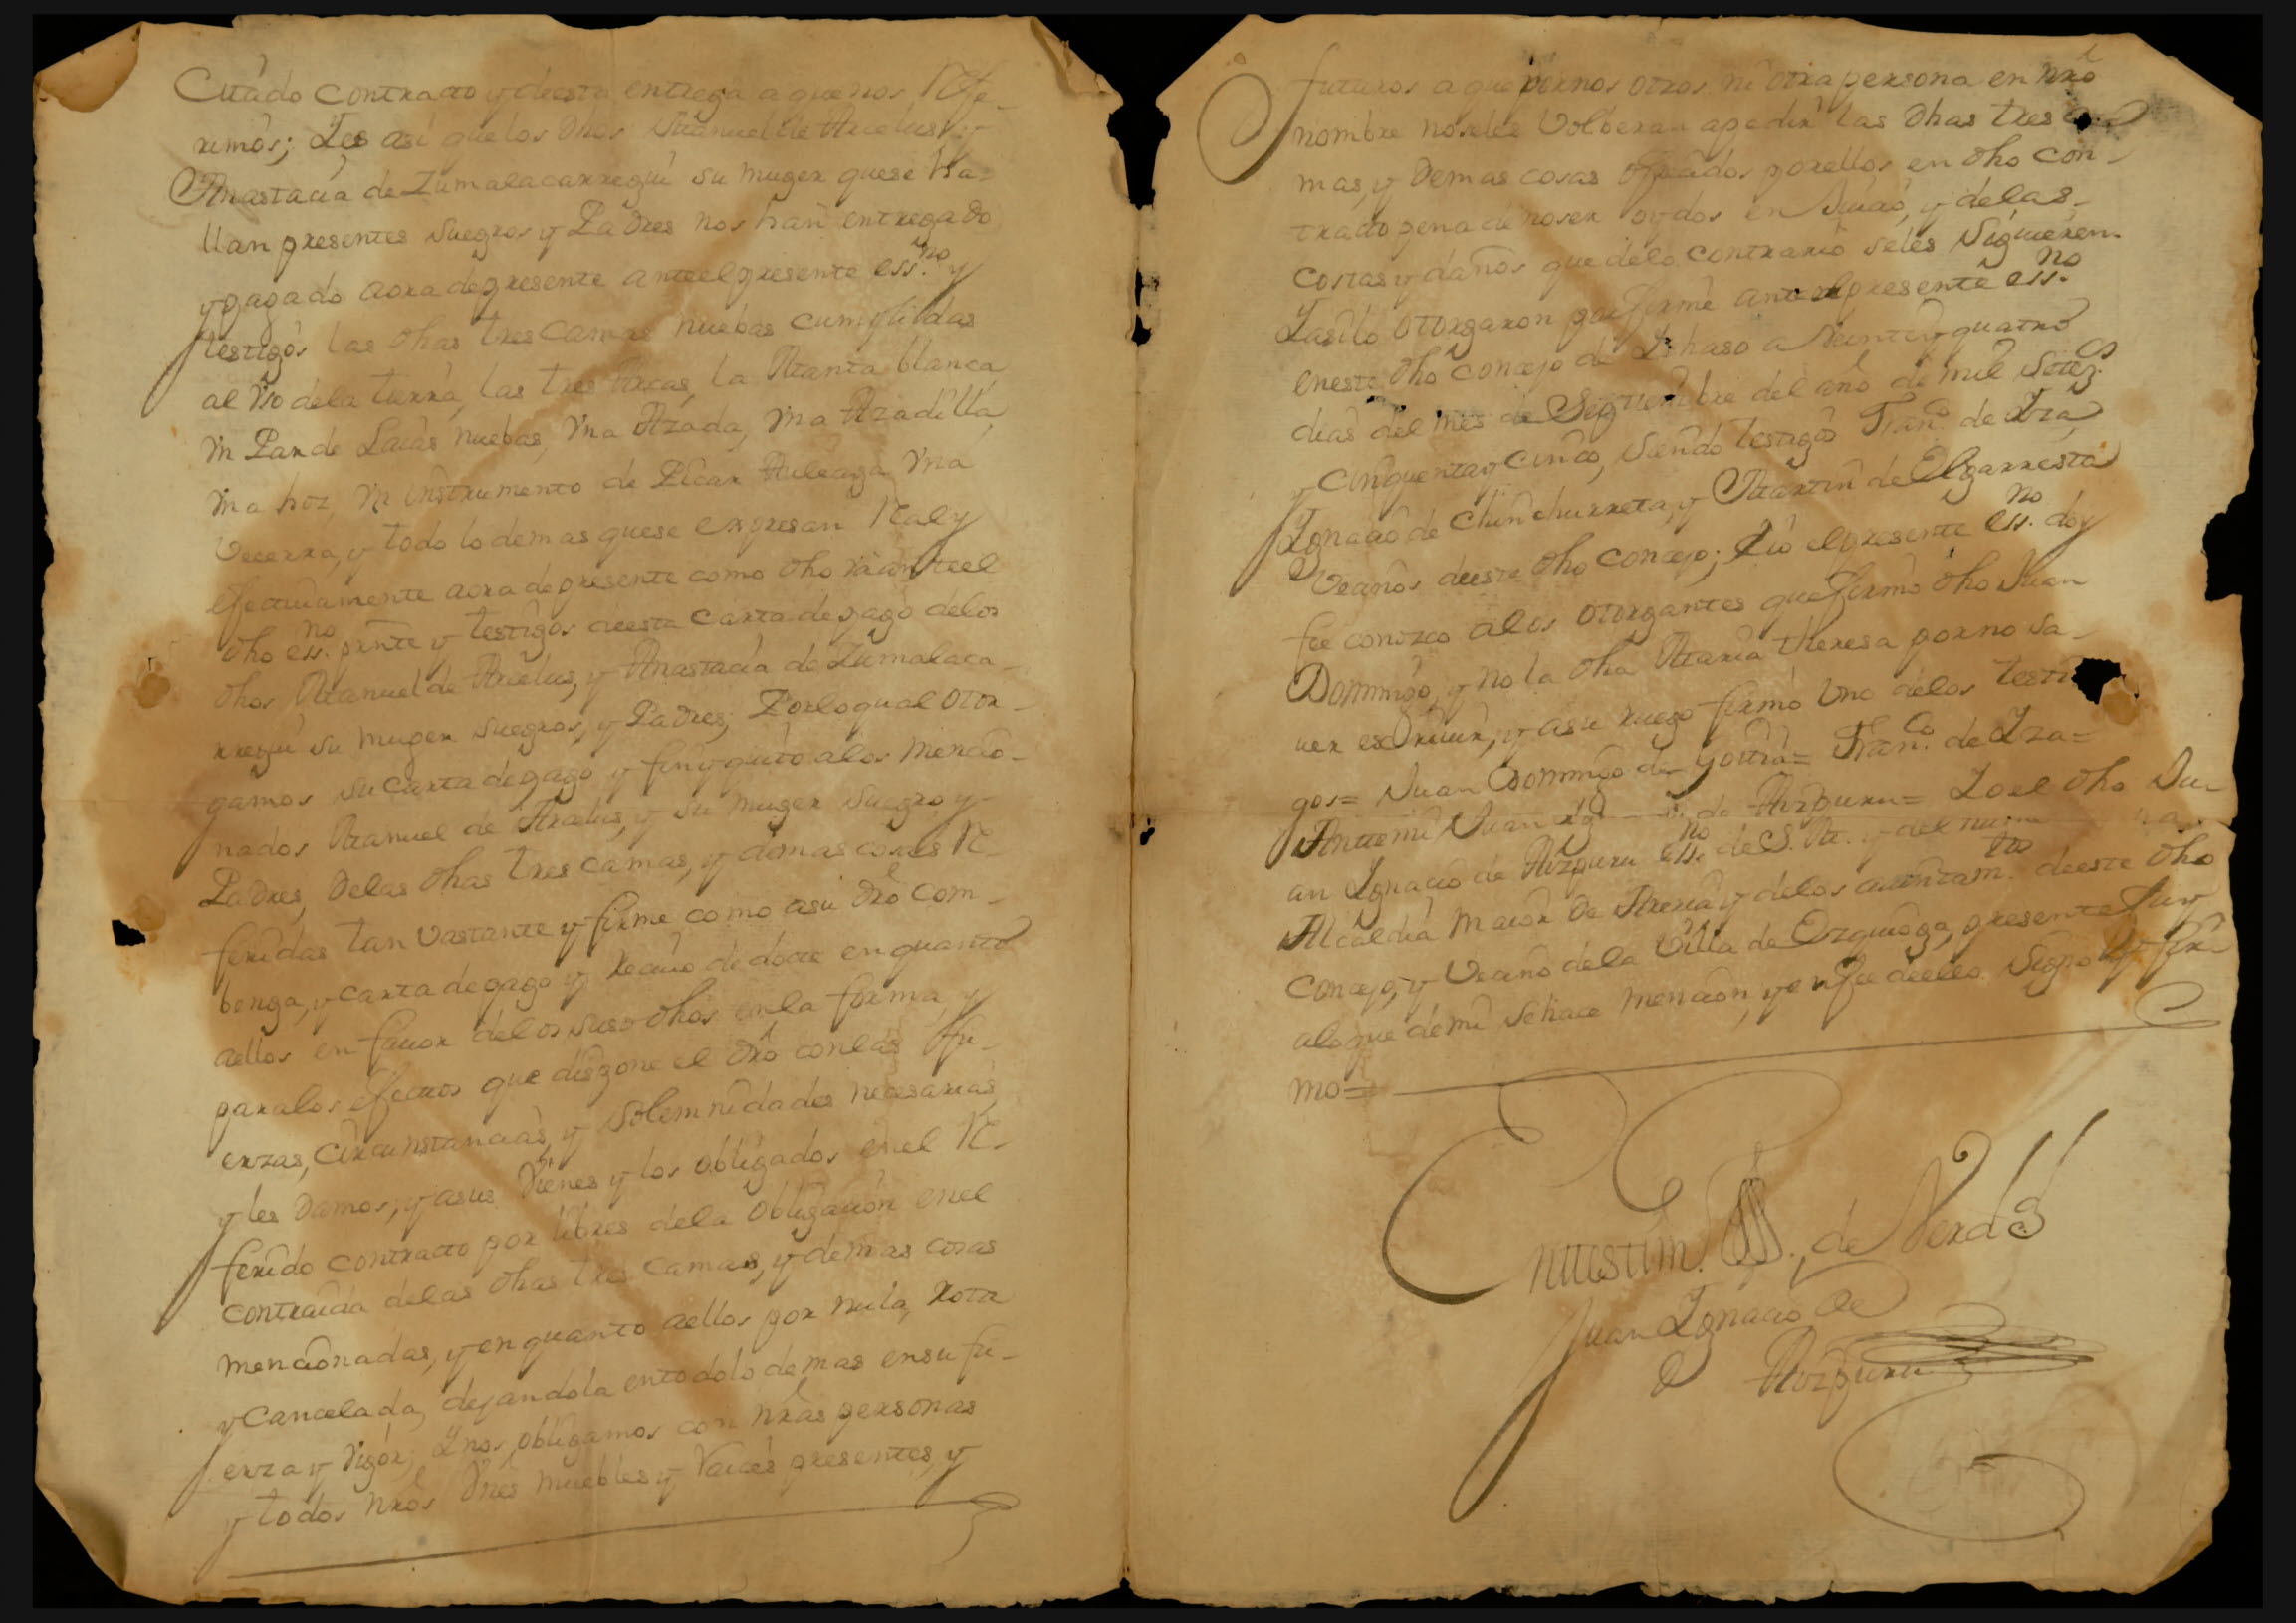 Citado contracto y deesta entrega a que nos Refe-
rimos; Y es asi que los dhos Manuel de Arcelus, y
Anastacia de Zumalacarregui su muger que se ha-
llan presentes suegros y Padres nos han entregado
y pagado aora de presente ante el presente ess.no y
testigos las dhas tres camas nuebas cumplidas
al vso dela tierra, las tres Arcas, la Manta blanca
vn Par de Laias nuebas, vna Azada, vna Azadilla,
vna hoz, vn instrumento de Picar Auleaga vna
Vecerra, y todo lo demas que se expresan Real y
efectiuamente aora de presente como dho va ante el
dho ess.no prnte y testigos deesta carta de pago delos
dhos Manuel de Arcelus, y Anastacia de Zumalaca-
rregui su muger suegros, y Padres; Por lo qual otor-
gamos su carta de pago y finyquito alos mencio-
nados Manuel de Arcelus, y su muger suegros, y
Padres, delas dhas tres camas, y demas cosas Re-
feridas tan vastante y firme como asu dro com-
benga, y carta de pago y Reciuo de dote en quanto
aellos en fauor delos suso dhos en la forma, y
para los efectos que dispone el dro con las fu-
erzas, circunstancias, y solemnidades necesarias,
y les damos, y asus vienes y los obligados en el Re-
ferido contracto por libres dela obligacion en el
contraida delas dhas tres camas, y demas cosas
mencionadas, y en quanto aellos por nula, Rota
y Cancelada, dejandola en todo lo demas en su fu-
erza y vigor; Y nos obligamos con nras personas
y todos nros vnes muebles y Raices presentes, y
futuros a que por nos otros ni otra persona en nro
nombre no seles volberan apedir las dhas tres ca-
mas, y demas cosas ofrecidos por ellos en dho con-
tracto pena de no ser oydos en Juicio, y delas
costas y daños que delo contrario seles siguieren.
Y asi lo otorgaron por firme ante el presente ess.no
en este dho concejo de Ychaso a veinte y quatro
dias del mes de Septiembre del año de mil setez.s
y cinquenta y cinco, siendo testigos Fran.co de Yza,
Ignacio de Chinchurreta, y Martin de Elgarresta
Vecinos deeste dho concejo; E yo el presente ess.no doy
fee conozco alos otorgantes que firmó dho Juan
Domingo, y no la dha Maria theresa por no sa-
uer escriuir, y asu ruego firmó vno delos testi
gos= Juan Domingo de Goitia= Fran.co de Yza=
Ante mi Juan Ig de Aizpuru= Yo el dho Ju-
an Ignacio de Aizpuru ess.no de S. M. y del
Alcaldia maior de Areria y delos aiuntam.tos deeste dho
concejo, y Vecino dela Villa de Ezquioga, presente fuy
alo que de mi se hace mencion, y en fee deello signo y fir
mo=
En testim.o de Verdd
Juan Ignacio de
Aizpuru